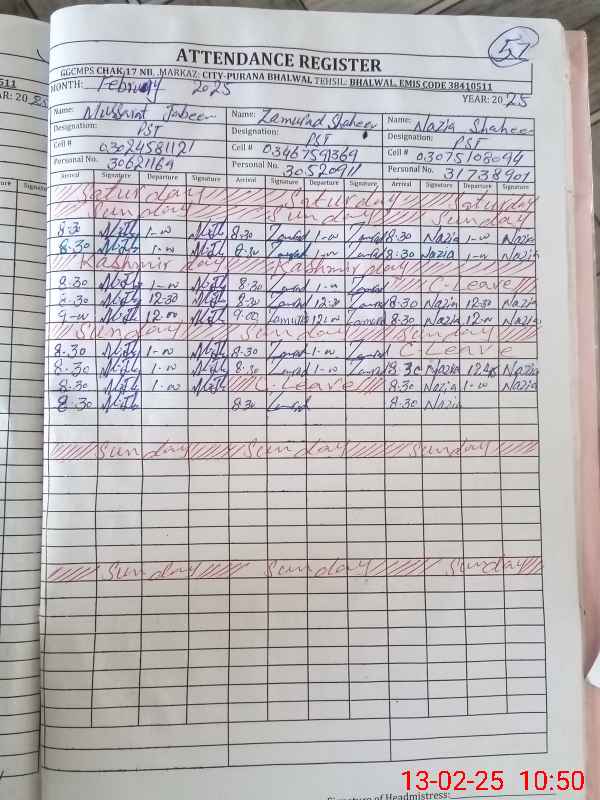 57
ATTENDANCE REGISTER
GGCMPS CHAK 17 NB, MARKAZ: CITY-PURANA BHALWAL TEHSIL: BHALWAL, EMIS CODE 38410511
MONTH: February 2025 YEAR: 2025
511
AR: 2025
Name: Jabeen Name: Zamurad Shaheen Name: Nazia Shaheen
Designation: PST Designation: PST Designation: PST
Cell # 03024581121 Cell # 0346759369 Cell # 03075108094
Personal No. 30621169 Personal No. 30520911 Personal No. 31738901
Arrival Signature Departure Signature Arrival Signature Departure Signature Arrival Signature Departure Signature
Saturday Saturday Saturday
Sunday Sunday Sunday
8:30 1-00 8:30 1-00 8:30 Nazia 1-00 Nazia
8:30 1-00 8:30 1-00 8:30 Nazia 1-00 Nazia
Kashmir day Kashmir day
8:30 1-00 8:30 1-00 C-Leave
8:30 12:30 8:30 12:30 8:30 Nazia 12:30 Nazia
9-00 12:00 9:00 12:00 8:30 Nazia 12-00 Nazia
Sunday Sunday Sunday
8:30 1-00 8:30 1-00 C-Leave
8:30 1-00 8:30 1-00 8:30 Nazia 12:45 Nazia
8:30 1-00 C-Leave 8:30 Nazia 1-00 Nazia
8:30 8:30 8:30 Nazia
Sunday Sunday Sunday
Sunday Sunday Sunday
Signature of Headmistress:
13-02-25 10:50